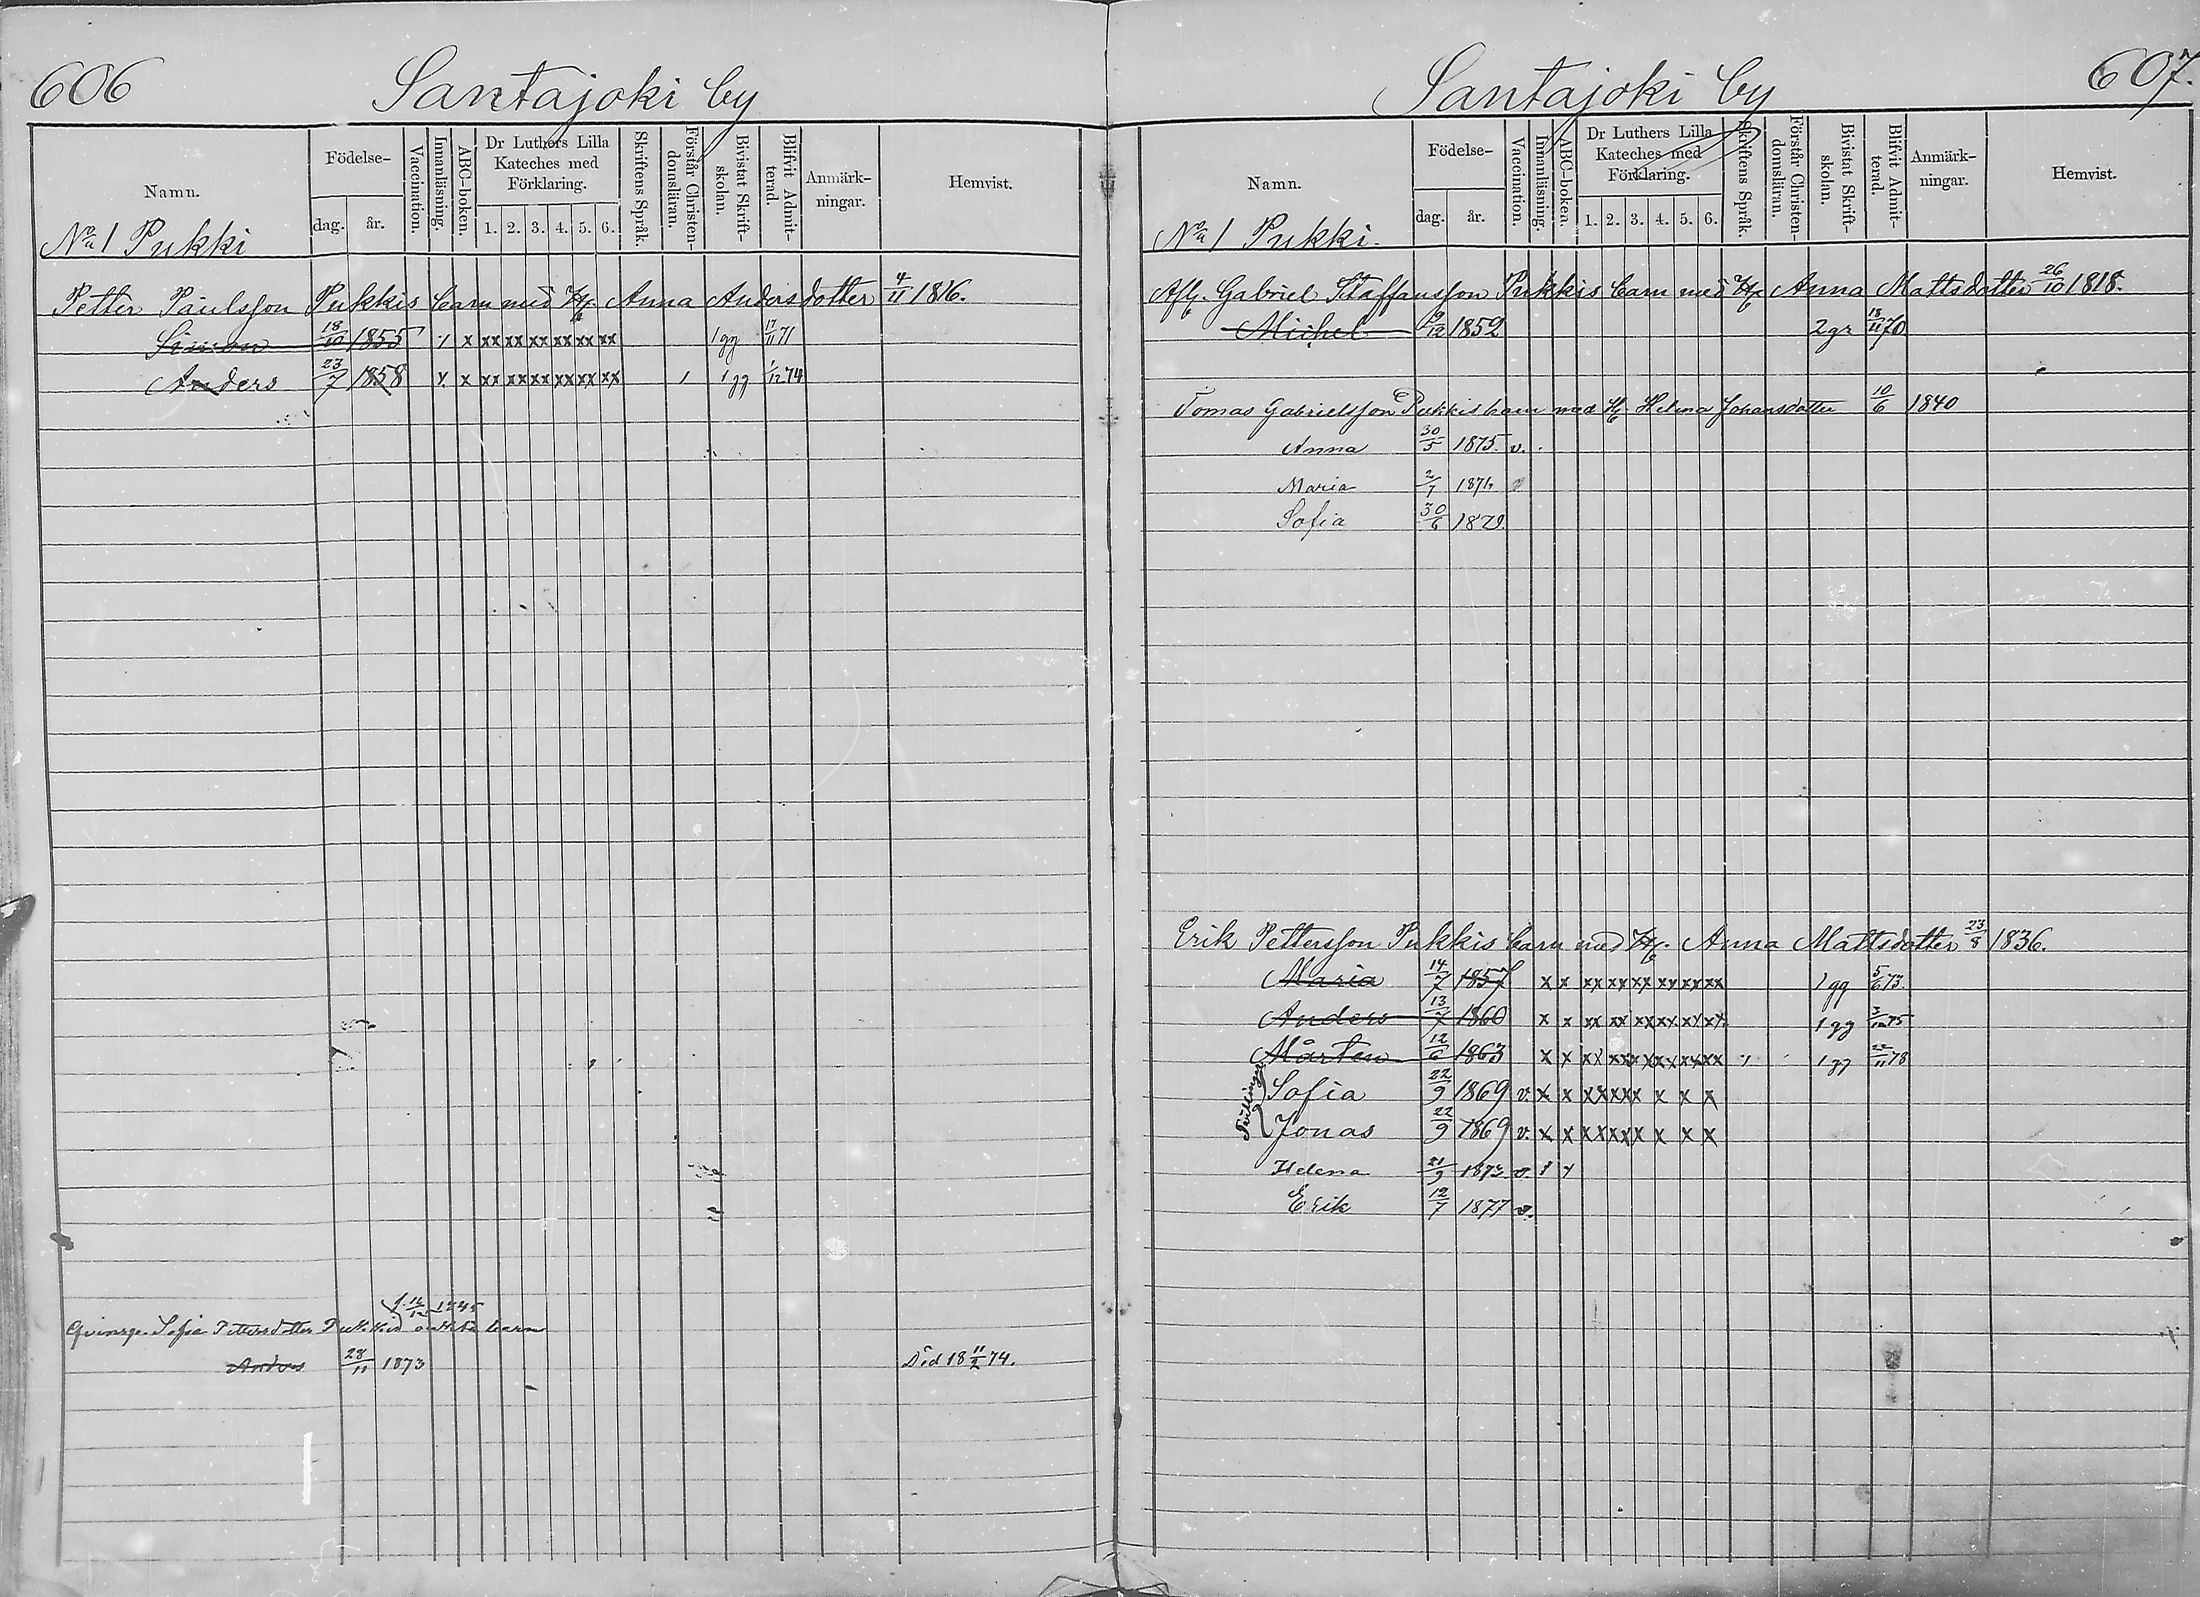 606
Santajoki by
Namn. Födelse- dag. år. Vaccination. Innanläsning. ABC-boken. Dr Luthers Lilla Kateches med Förklaring. 1. 2. 3. 4. 5. 6. Skriftens Språk. Förstår Christendomsläran. Bivistat Skriftskolan. Blifvit Admitterad. Anmärkningar. Hemvist.
No 1 Pukki
Petter Paulsson Pukkis barn med H. Anna Andersdotter 4/11 1816.
Simon 18/10 1855 x x xx xx xx xx xx xx 1 gg 17/11 71
Anders 23/7 1858 x x xx xx xx xx xx xx 1 1 gg 1/12 74
f. 12/12 1845
Qvinsp. Sofia Pettersdotter Pukkis oäkta barn
Anders 28/11 1873 Död 18 11/2 74.
607.
Santajoki by
Namn. Födelse- dag. år. Vaccination. Innanläsning. ABC-boken. Dr Luthers Lilla Kateches med Förklaring. 1. 2. 3. 4. 5. 6. Skriftens Språk. Förstår Christendomsläran. Bivistat Skriftskolan. Blifvit Admitterad. Anmärkningar. Hemvist.
No 1 Pukki.
Afl. Gabriel Staffansson Pukkis barn med H. Anna Mattsdotter 26/10 1818.
Michel 9/12 1852 2 gr 18/11 70
Tomas Gabrielsson Pukkis barn med H. Helena Johansdotter 10/6 1840
Anna 30/5 1875. v.
Maria 2/7 1876 v
Sofia 30/6 1879.
Erik Pettersson Pukkis barn med H. Anna Mattsdotter 23/8 1836.
Maria 14/7 1857 x x xx xx xx xx xx xx 1 gg 5/6 73.
Anders 13/7 1860 x x xx xx xx xx xx xx 1 gg 3/12 75
Mårten 12/6 1863 x x xx xx xx xx xx xx 1 gg 22/11 78
Tvillingar
Sofia 22/9 1869 v. x x xx xx x x x x
Jonas 22/9 1869 v. x x xx xx x x x x
Helena 21/9 1873 v.
Erik 12/7 1877 v.